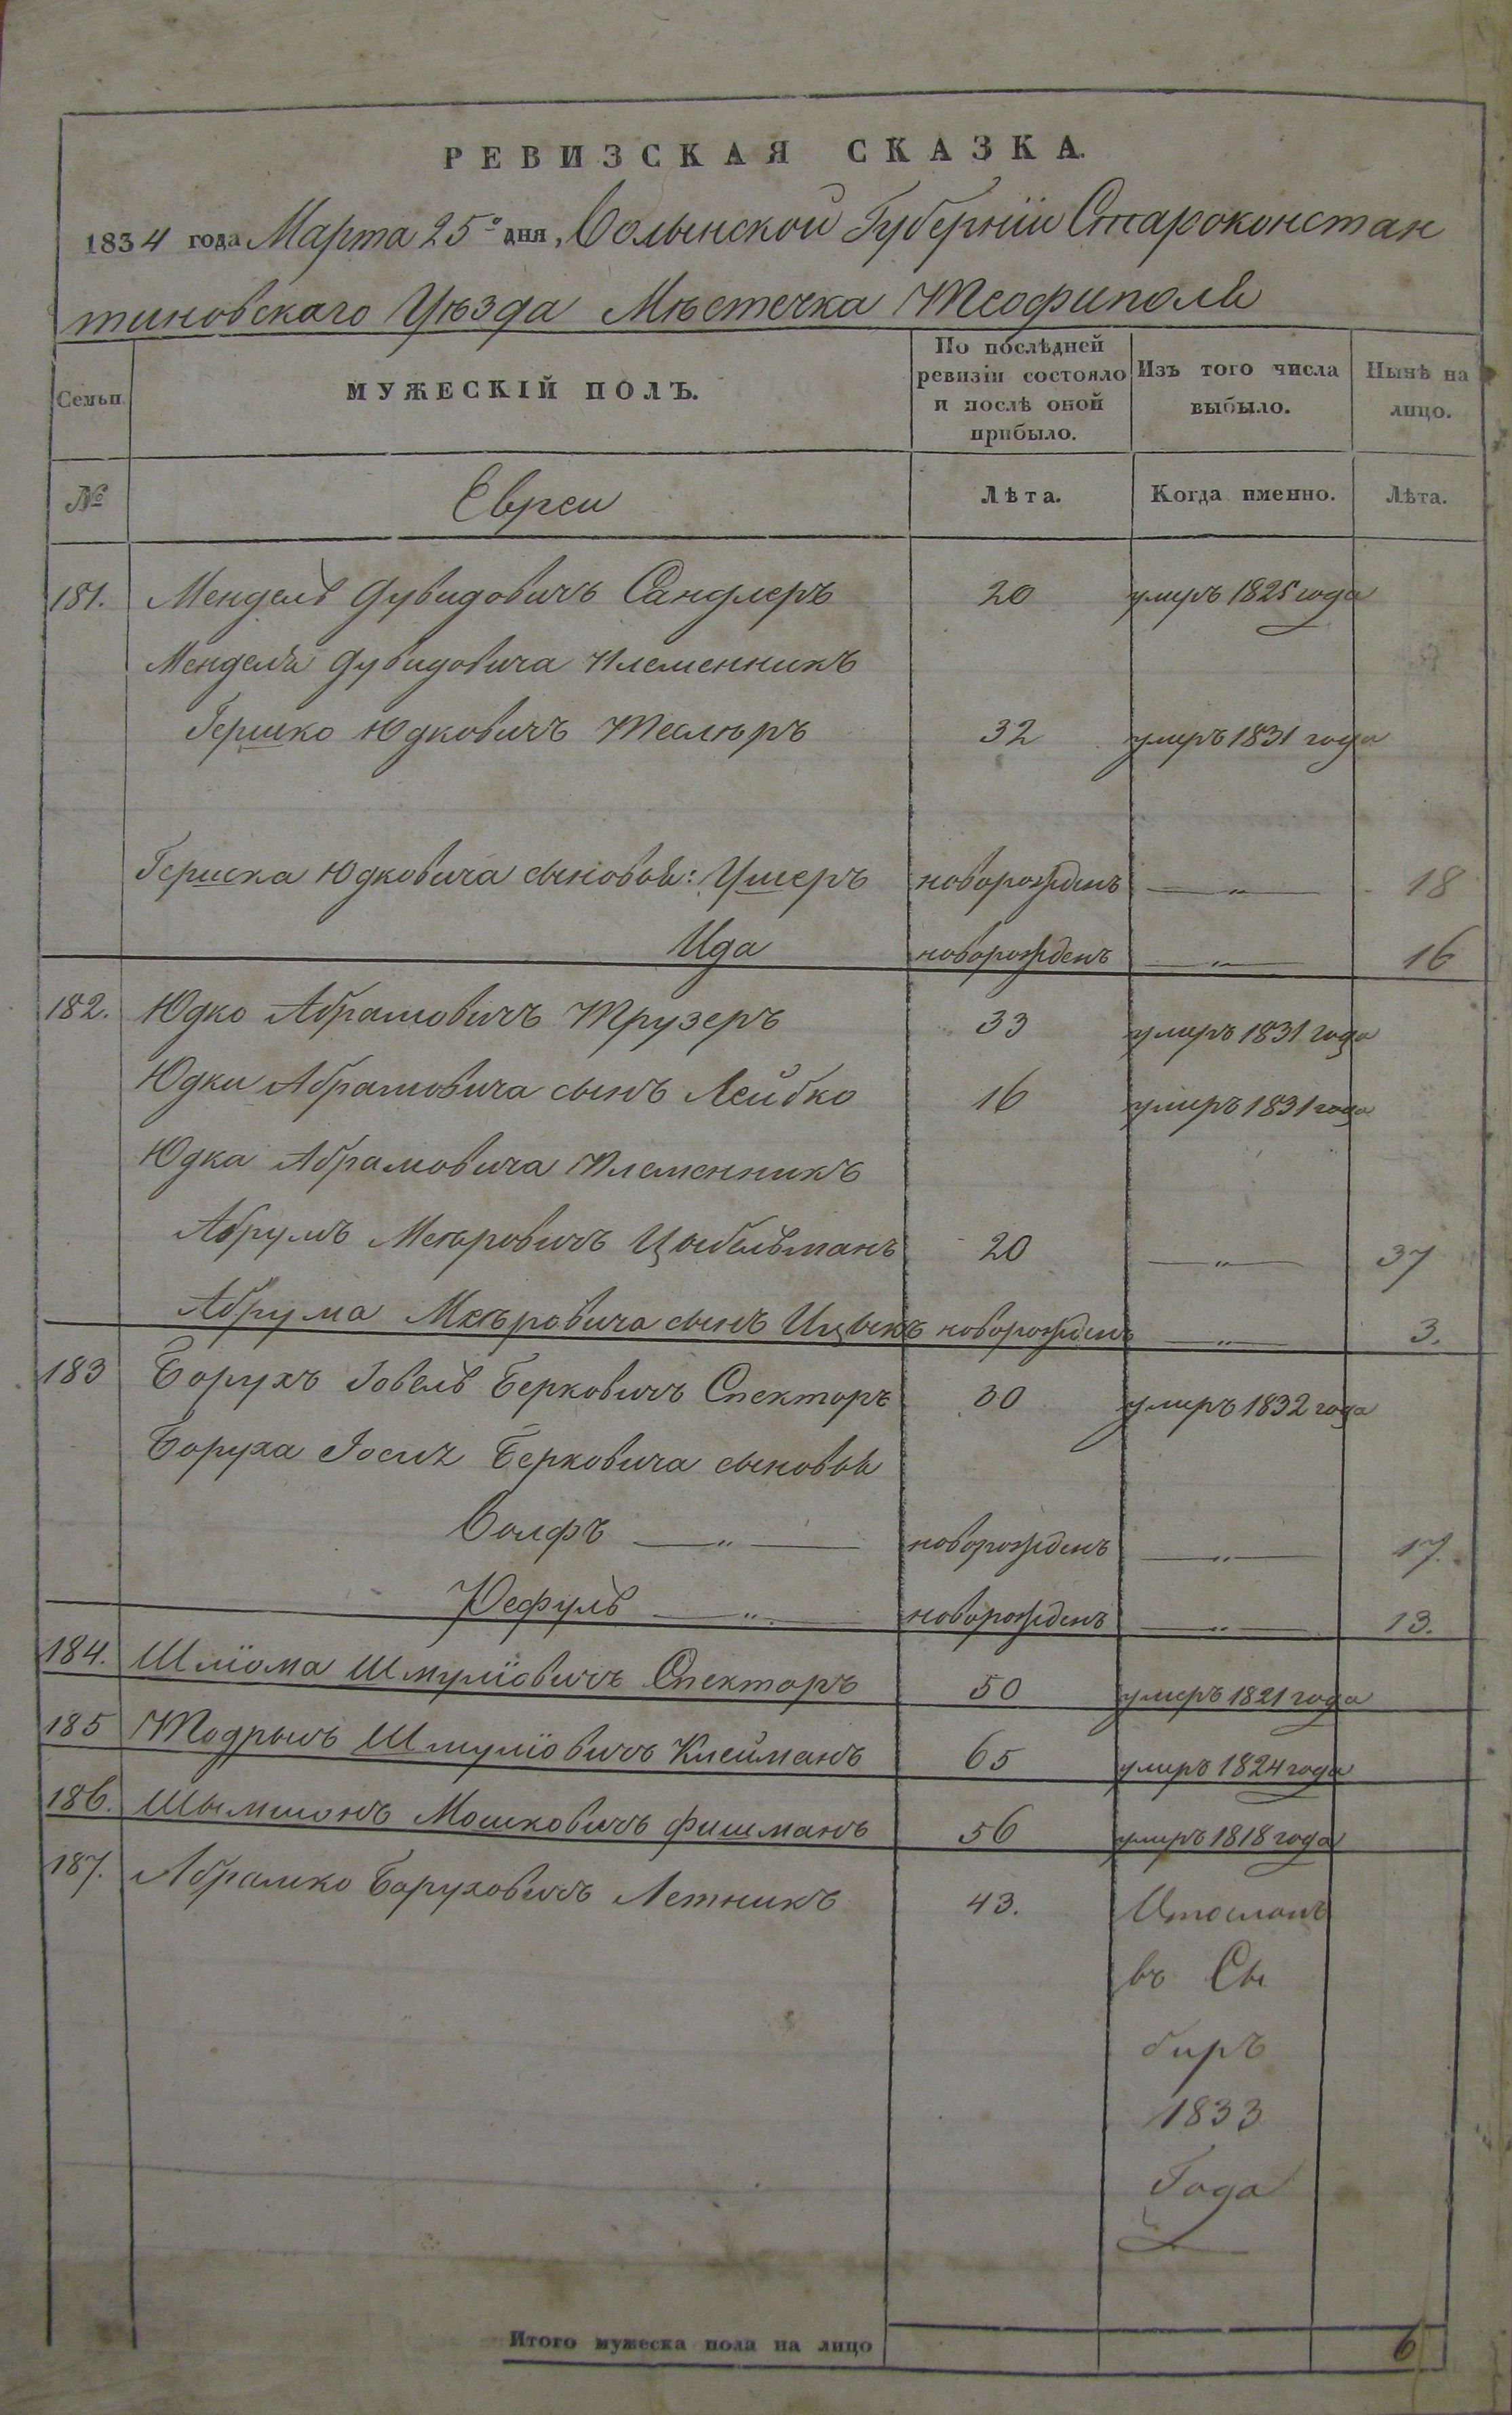 РЕВИЗСКАЯ СКАЗКА.
1834 года Марта 25го дня, Волынской Губерніи Староконстан
тиновскаго Уѣзда Мѣстечка Теофиполя
Семьи
МУЖЕСКІЙ ПОЛЪ.
По послѣдней ревизіи состояло и послѣ оной прибыло.
Изъ того числа выбыло.
Нынѣ на лицо.
№
Евреи
Лѣта.
Когда именно.
Лѣта.
181. Мендель Дувидовичъ Сандлеръ 20 умеръ 1825 года
Менделя Дувидовича племенникъ
Гершко Юдковичъ Теслюръ 32 умеръ 1831 года
Гершка Юдковича сыновья: Ушеръ новорожденъ —"— 18
Ида новорожденъ —"— 16
182. Юдко Абрамовичъ Трузеръ 33 умеръ 1831 года
Юдки Абрамовича сынъ Лейбко 16 умеръ 1831 года
Юдка Абрамовича племенникъ
Абрумъ Мееровичъ Цыбельманъ 20 —"— 37
Абрума Меєровича сынъ Ицыкъ новорожденъ —"— 3.
183 Борухъ Іовель Берковичъ Спекторъ 30 умеръ 1832 года
Боруха Берковича сыновья
Волфъ —"— новорожденъ —"— 17.
—"— новорожденъ —"— 13.
184. Шліома Шмуліовичъ Спекторъ 50 умеръ 1821 года
185 Тодрысъ Шмуліовичъ Клейманъ 65 умеръ 1824 года
186. Шымшонъ Мошковичъ Фишманъ 56 умеръ 1818 года
187. Абрамко Боруховичъ Летникъ 43. Отосланъ
въ Сы
биръ
1833
Года
Итого мужеска пола на лицо 6